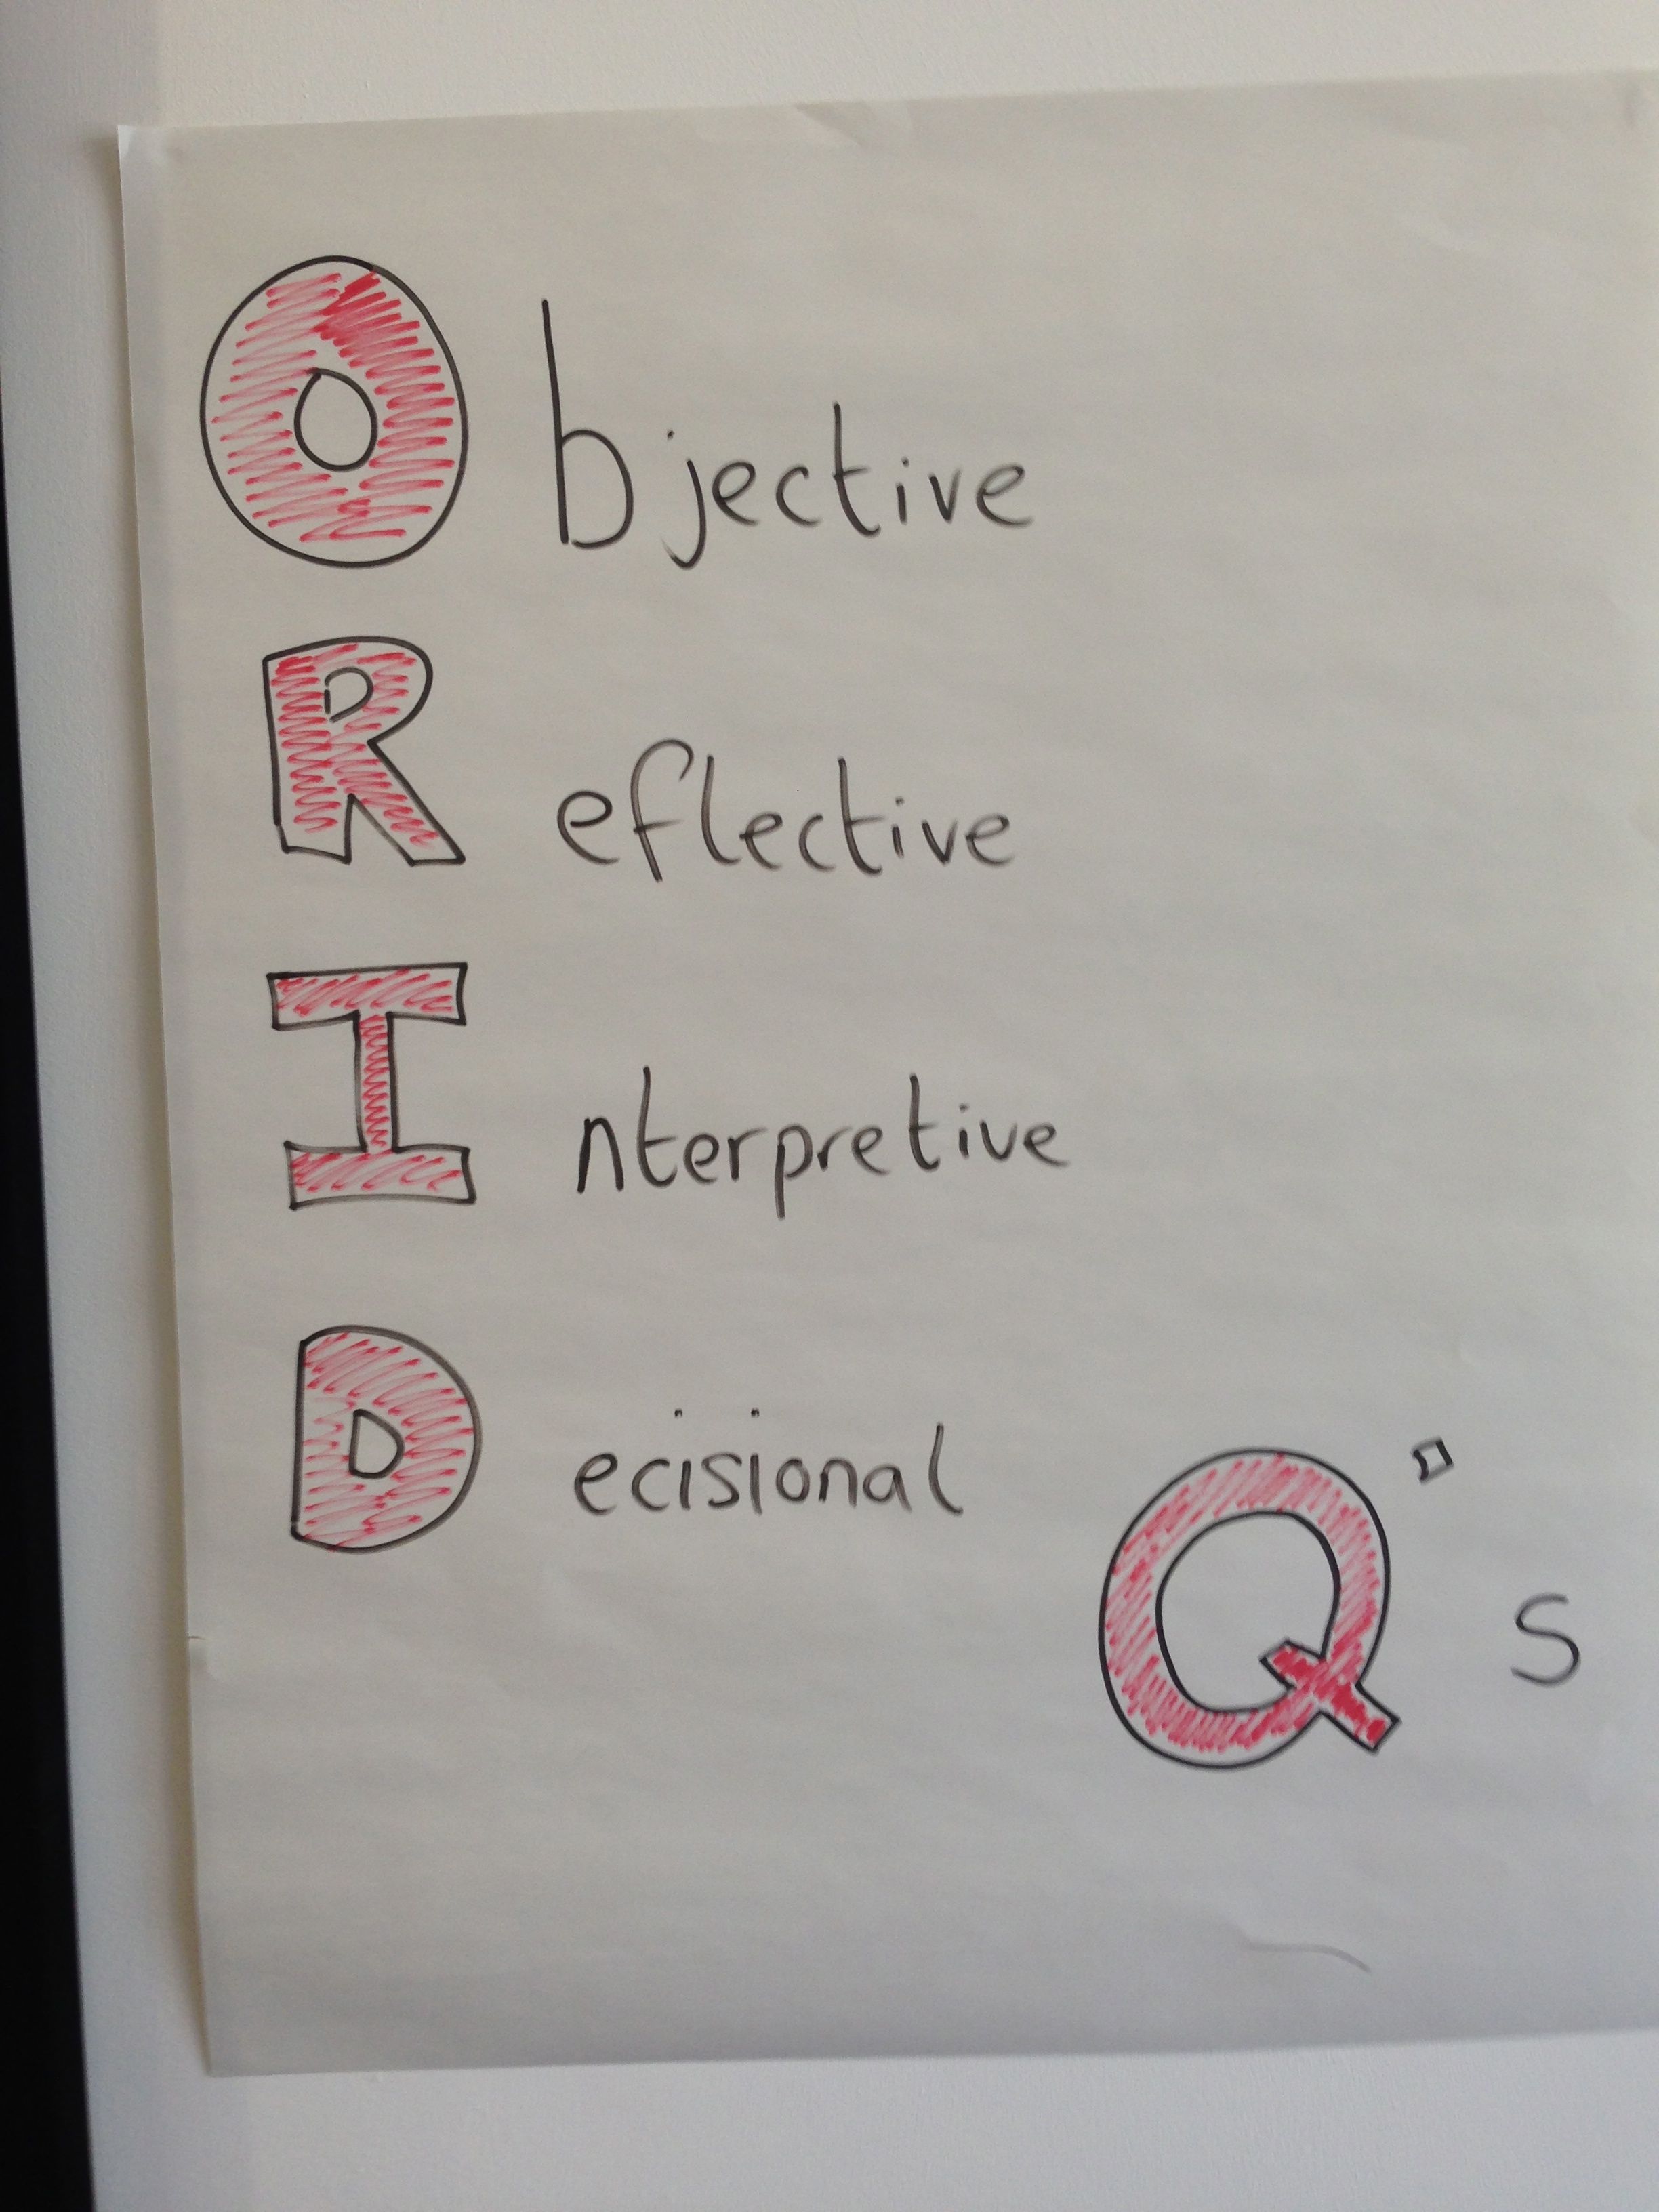 Objective
Reflective
Interpretive
Decisional
Q's